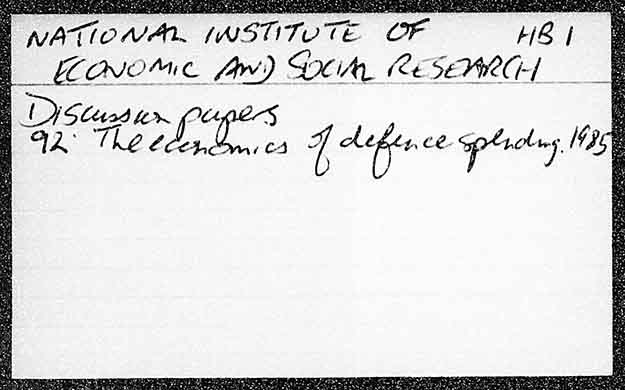 NATIONAL INSTITUTE OF HB1
ECONOMIC AND SOCIAL RESEARCH
Discussion papers
92. The economics of defence spending. 1985